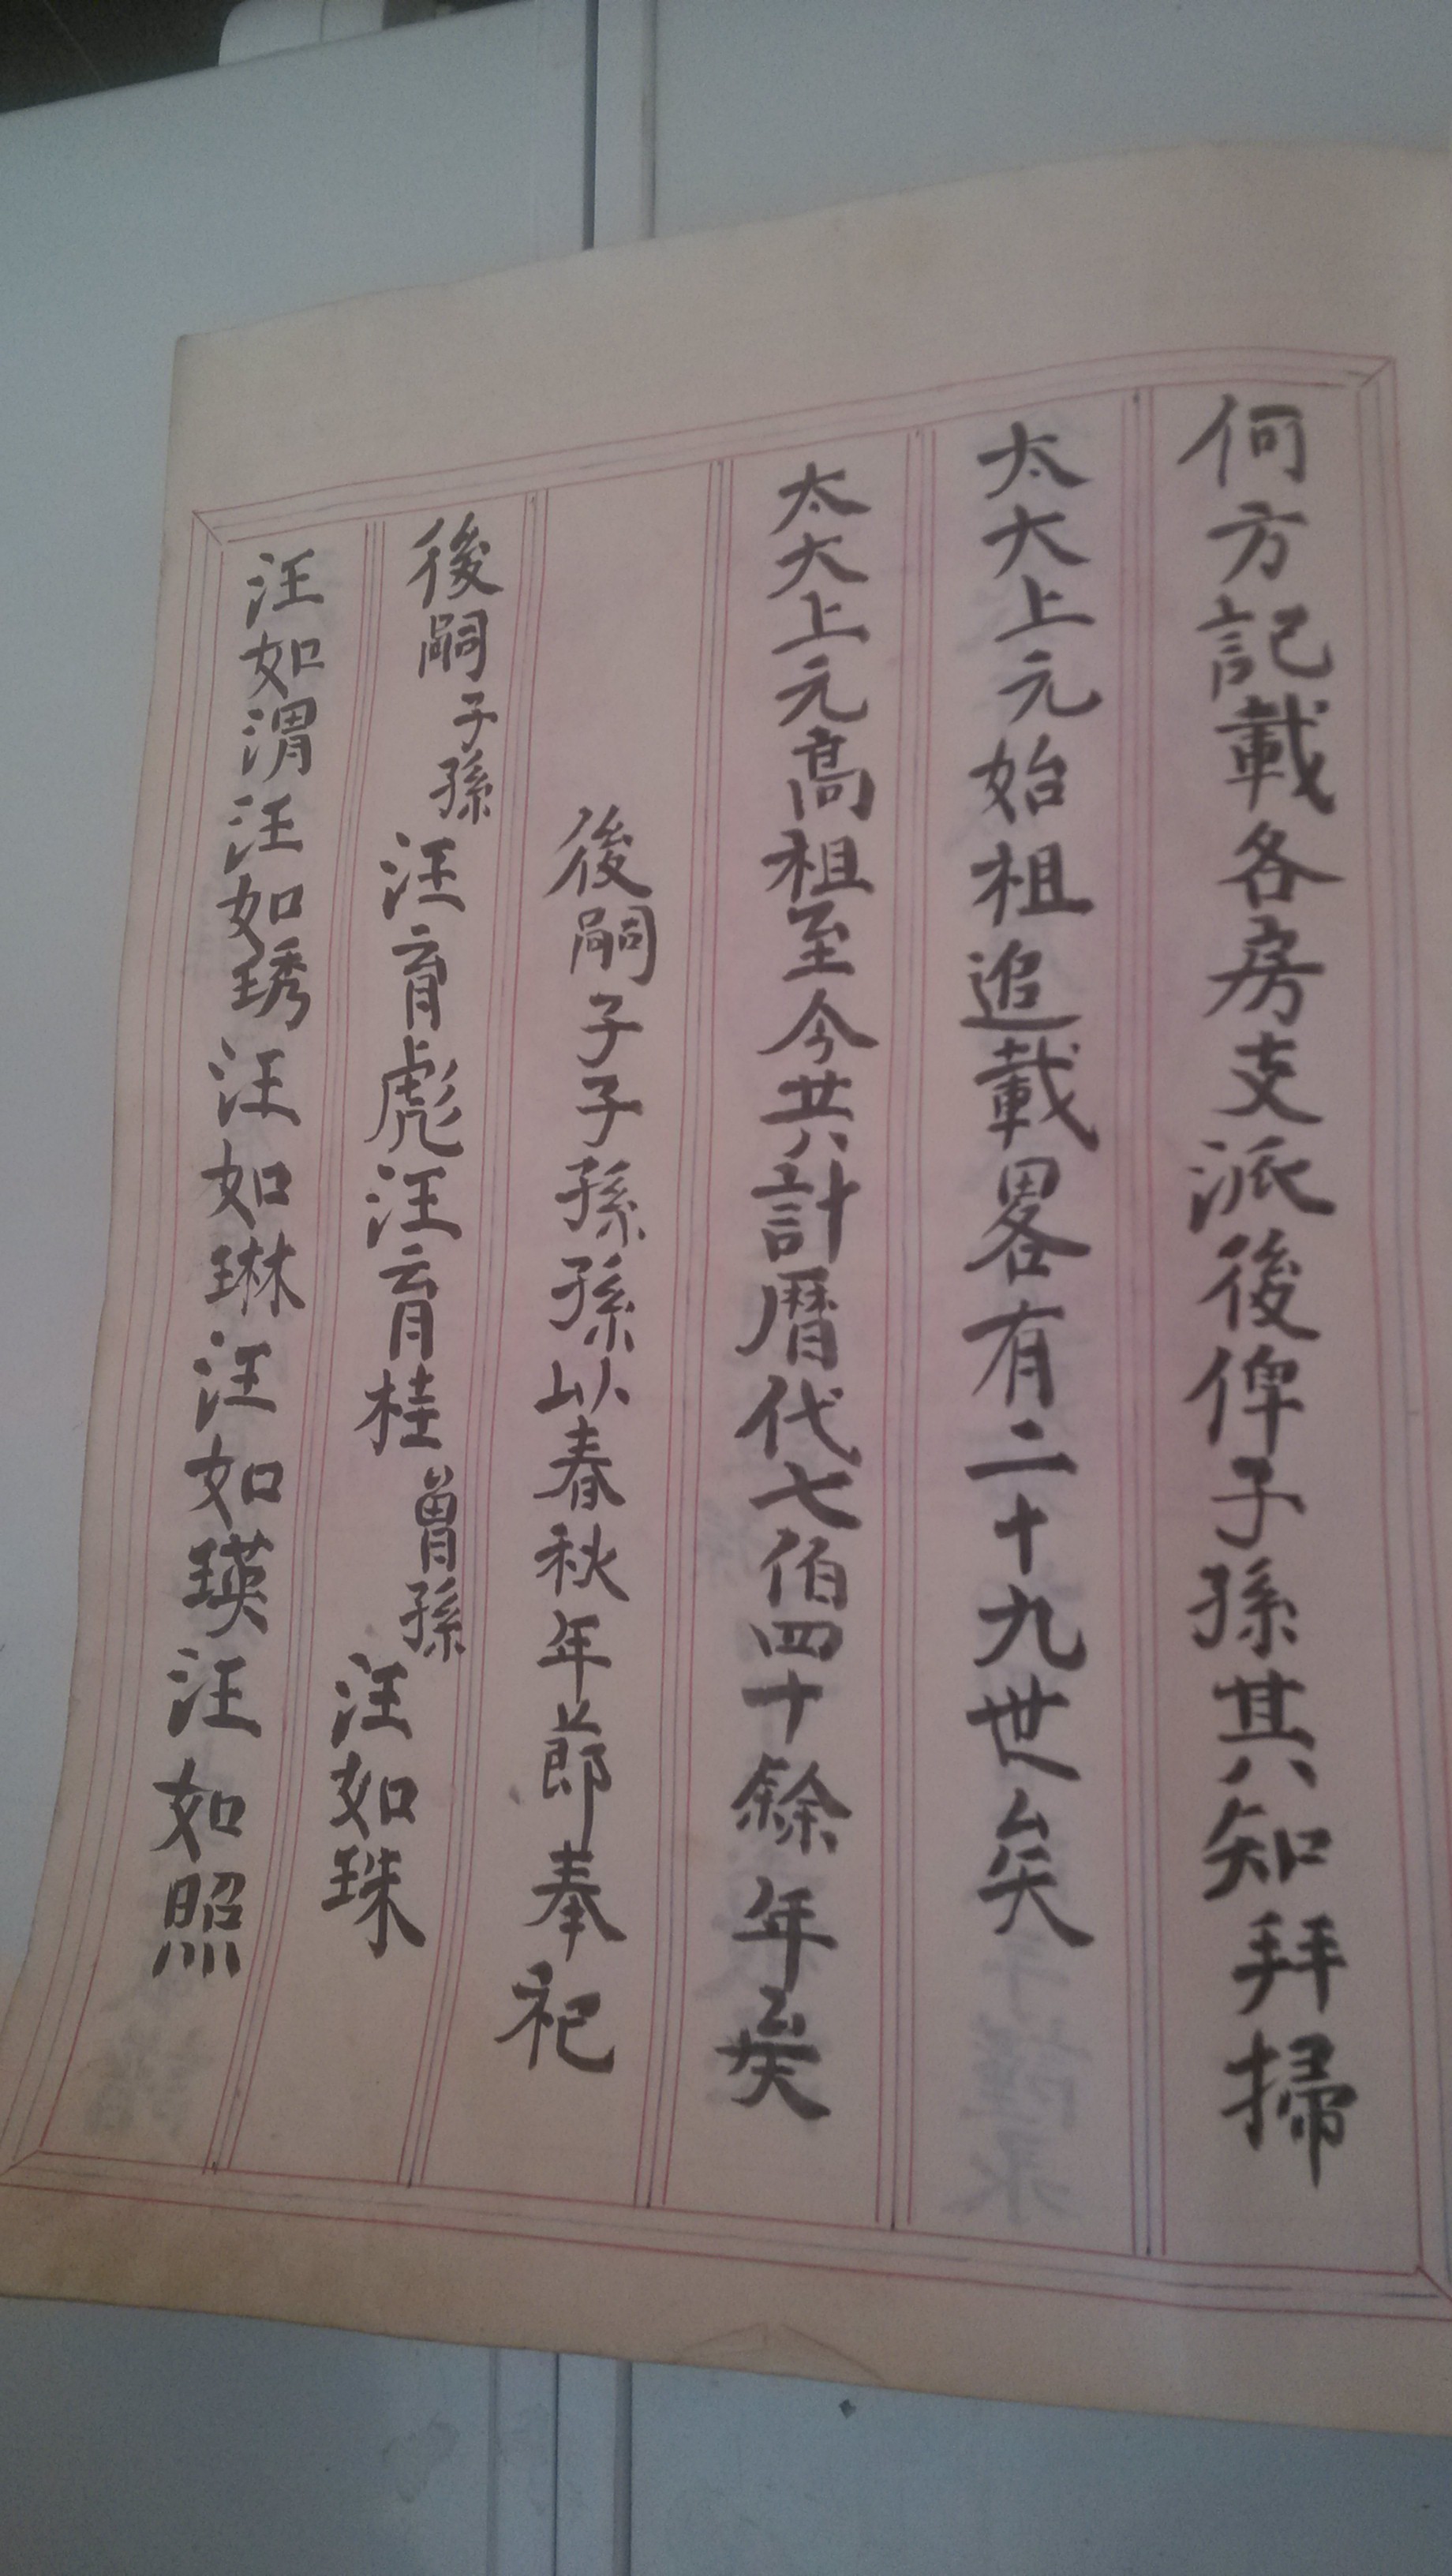 何方記載各房支派後俾子孫其知拜掃
太大上元始祖追載畧有二十九世矣
太大上元高祖至今共計曆代七伯四十餘年矣
後嗣子子孫孫以春秋年節奉祀
後嗣子孫汪育彪汪育桂曾孫汪如珠
汪如渭汪如琇汪如琳汪如瑛汪如照